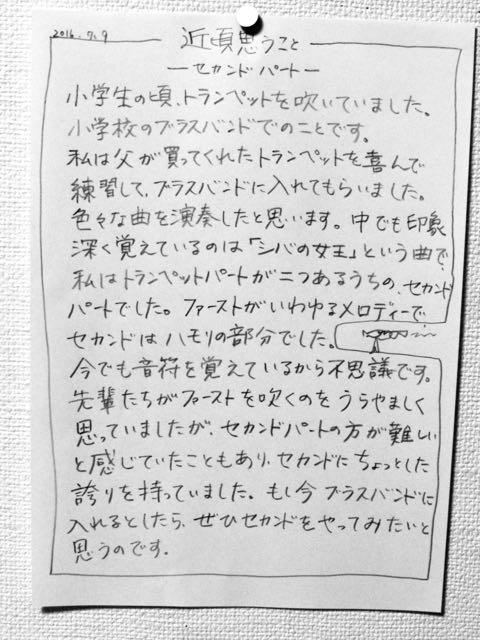 2016.7.9
近頃思うこと
—セカンドパート—
小学生の頃、トランペットを吹いていました。
小学校のブラスバンドでのことです。
私は父が買ってくれたトランペットを喜んで
練習して、ブラスバンドに入れてもらいました。
色々な曲を演奏したと思います。中でも印象
深く覚えているのは「シバの女王」という曲で、
私はトランペットパートが二つあるうちの、セカンド
パートでした。ファーストがいわゆるメロディーで
セカンドはハモリの部分でした。
今でも音符を覚えているから不思議です。
先輩たちがファーストを吹くのをうらやましく
思っていましたが、セカンドパートの方が難しい
と感じていたこともあり、セカンドにちょっとした
誇りを持っていました。もし今ブラスバンドに
入れるとしたら、ぜひセカンドをやってみたいと
思うのです。